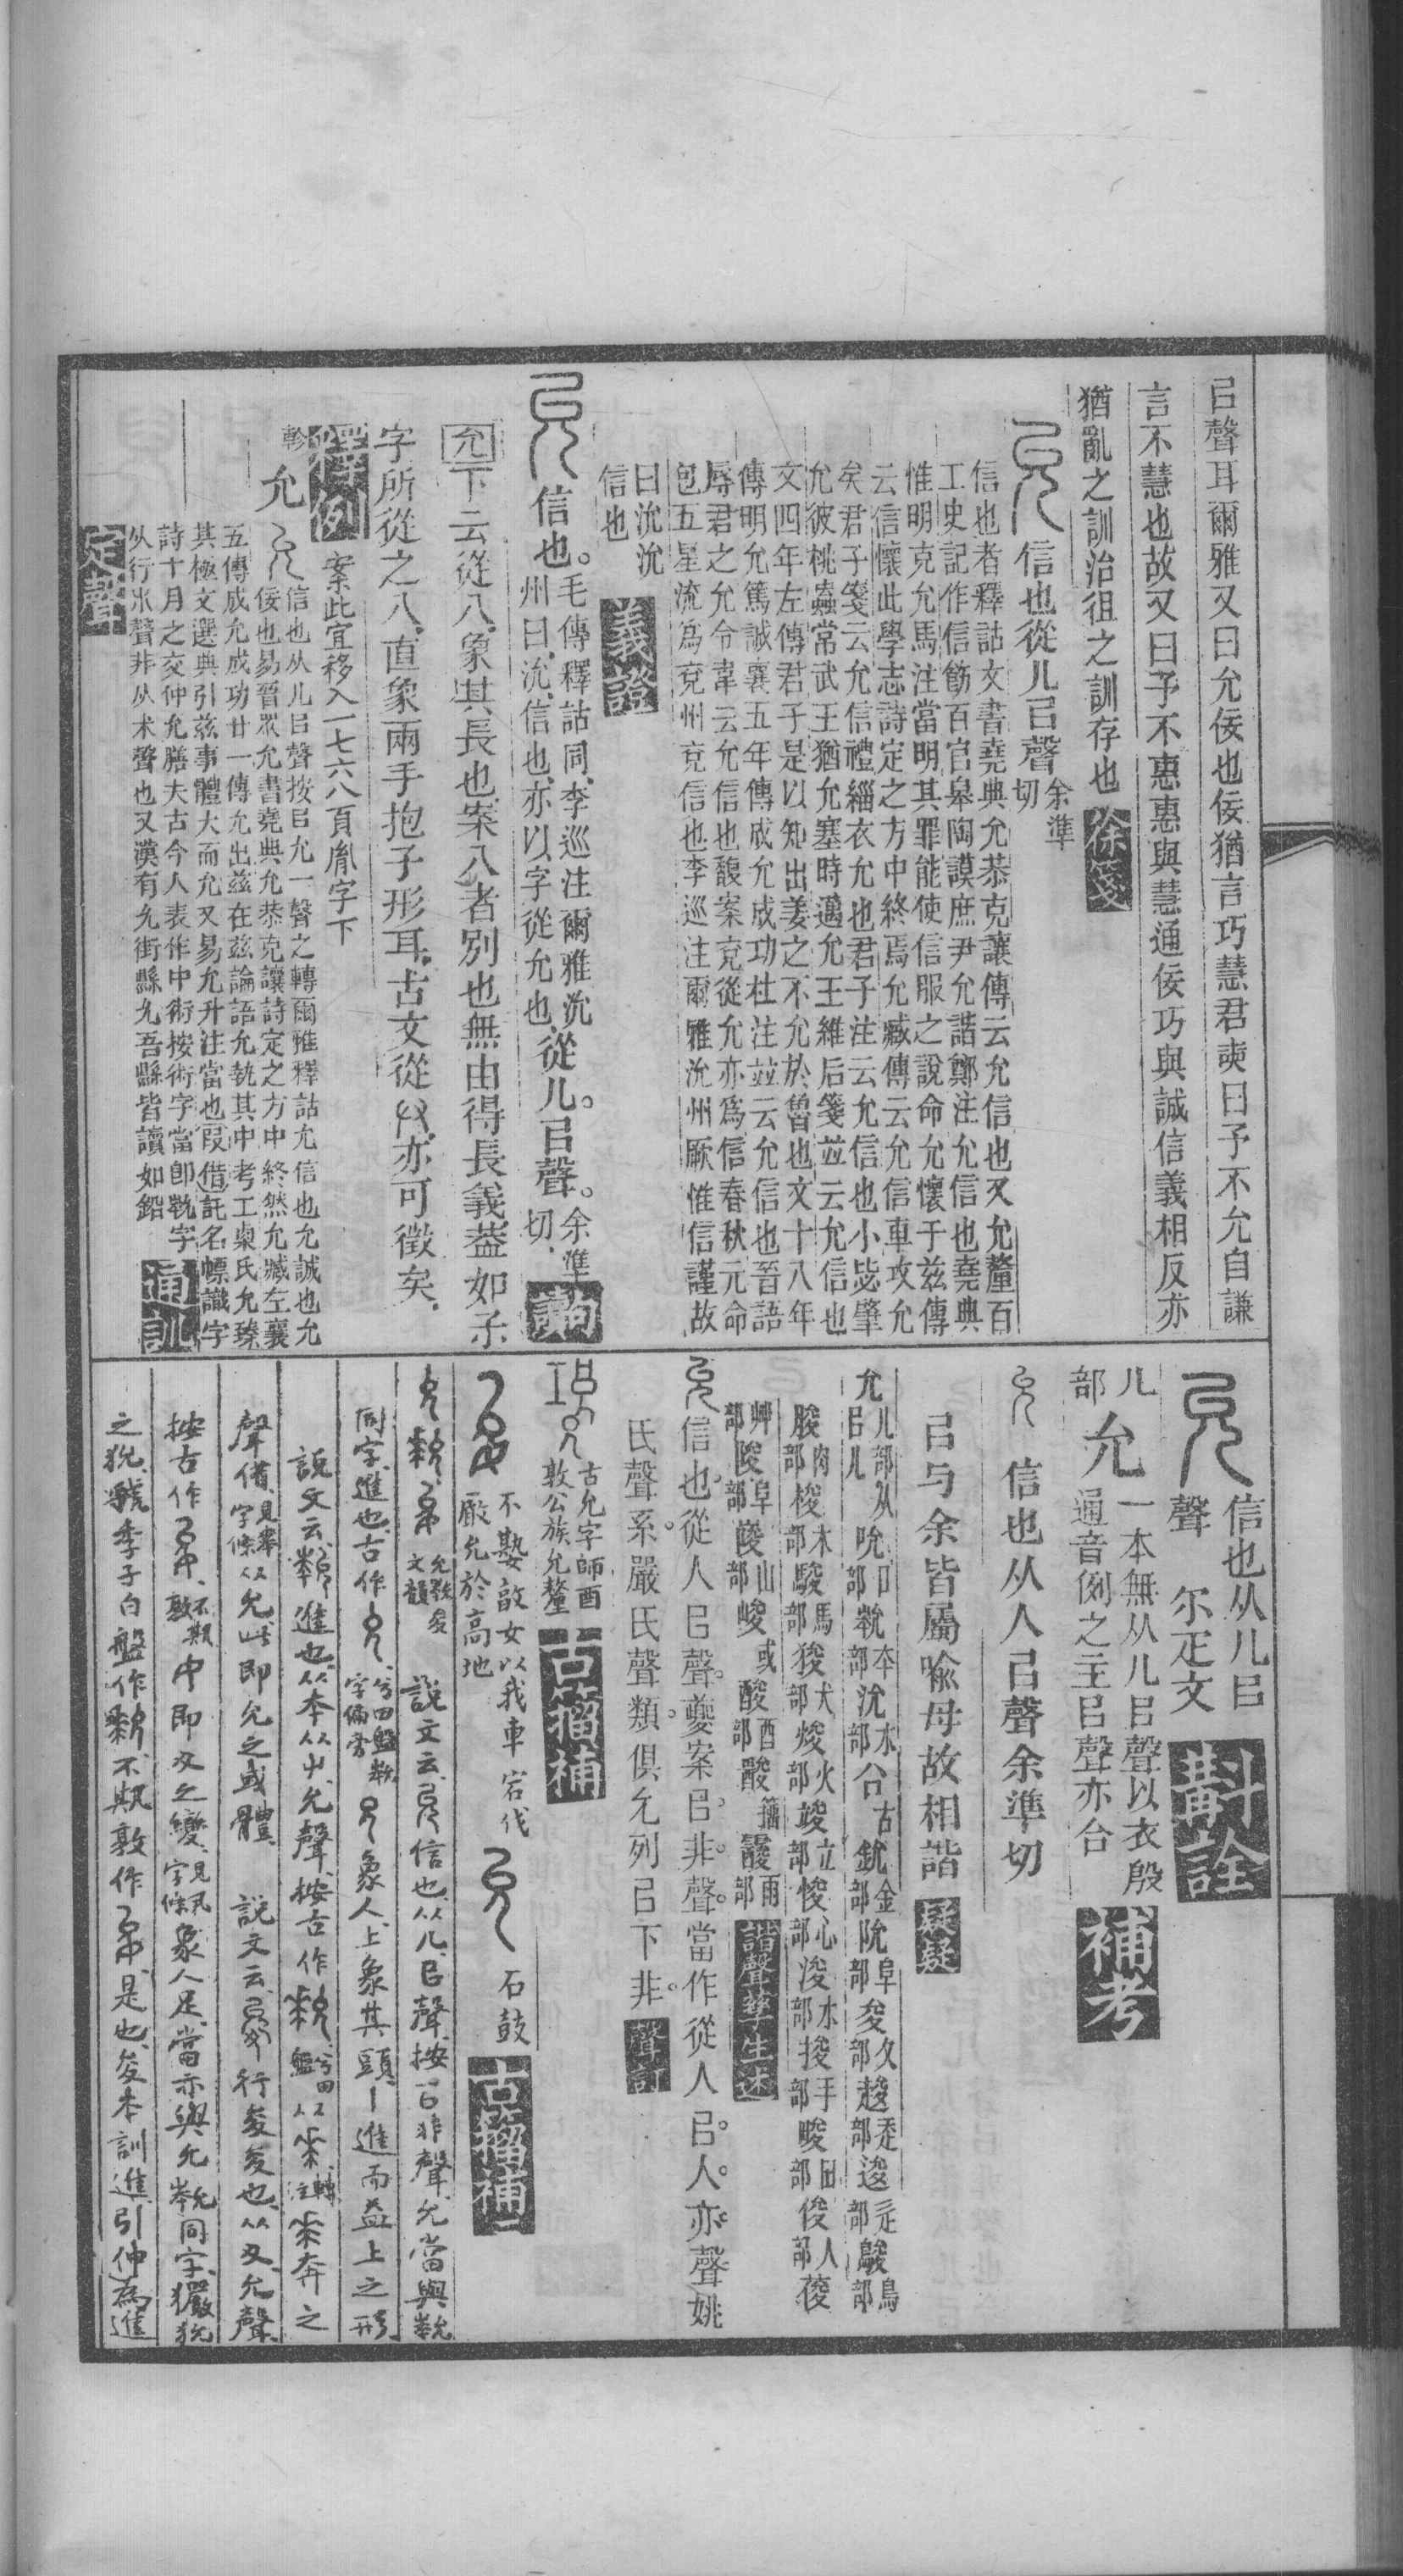 㠯聲耳爾雅又曰允佞也佞猶言巧慧君奭曰予不允自謙
言不慧也故又曰予不惠惠與慧通佞巧與誠信義相反亦
猶亂之訓治徂之訓存也 徐箋
信也從儿㠯聲 余準切
信也者釋詁文書堯典允恭克讓傳云允信也又允釐百
工史記作信飭百官皋陶謨庶尹允諧鄭注允信也堯典
惟明克允馬注當明其罪能使信服之說命允懷于兹傳
云信懷此學志詩定之方中終焉允臧傳云允信車攻允
矣君子箋云允信禮緇衣允也君子注云允信也小毖肇
允彼桃蟲常武王猶允塞時邁允王維后箋竝云允信也
文四年左傳君子是以知出姜之不允於魯也文十八年
傳明允篤誠襄五年傳成允成功杜注竝云允信也晉語
辱君之允令韋云允信也馥案兗從允亦爲信春秋元命
包五星流爲兗州兗信也李巡注爾雅沇州厥惟信謹故
曰沇沇
信也
義證
信也。毛傳釋詁同、李巡注爾雅沇
州曰、沇、信也、亦以字從允也、從儿。㠯聲。余準切、
允下云從八、象其長也、案八者別也無由得長義葢如㒸
字所從之八、直象兩手抱子形耳、古文從 亦可徵矣、
釋例
案此宜移入一七六八頁胤字下
軫 允 信也从儿㠯聲按㠯允一聲之轉爾雅釋詁允信也允誠也允
佞也易晉眾允書堯典允恭克讓詩定之方中終然允臧左襄
五傳成允成功廿一傳允出兹在兹論語允執其中考工㮚氏允臻
其極文選典引兹事體大而允又易允升注當也叚借託名幖識字
詩十月之交仲允膳夫古今人表作中術按術字當卽 字
从行朮聲非从术聲也又漢有允街縣允吾縣皆讀如鉛
通訓
定聲
信也从儿㠯
聲 尔疋文
斠詮
儿
部 允 一本無从儿㠯聲以衣殷
通音例之主㠯聲亦合
補考
信也从人㠯聲余準切
㠯与余皆屬喩母故相諧 疑疑
允 儿部从㠯儿 吮口部 部 沇水部 㕣古 鈗金部 阭阜部 夋夂部 趡部 逡辵部 鵔鳥部
朘肉部 梭木部 駿馬部 狻犬部 焌火部 竣立部 悛心部 浚水部 捘手部 畯田部 俊人部 葰
艸部 陖阜部 山部 峻或 酸酉部 籀 雨部
諧聲孳生述
信也。從人㠯聲。夔案㠯。非。聲。當作從人㠯。人。亦聲姚
氏聲系。嚴氏聲類。俱允列㠯下非。
聲訂
古允字師酉
敦公族允釐
古籀補
不𡢁敦女以我車宕伐
厰允於高地
石鼓
古籀補
文韻 說文云、 信也、从儿、㠯聲、按㠯非聲、允當與
同字、進也、古作 象人、上象其頭、丨進而益上之形
說文云、 進也、从夲从屮允聲、按古作 从 轉注 奔之
聲借、 从允、此即允之或體、 說文云、 行夋夋也、从夊允聲、
按古作 不𡢁敦、 即夊之變、 象人足、當亦與允 同字、玁狁
之狁、虢季子白盤作 不𡢁敦作 是也、夋本訓進引伸爲進